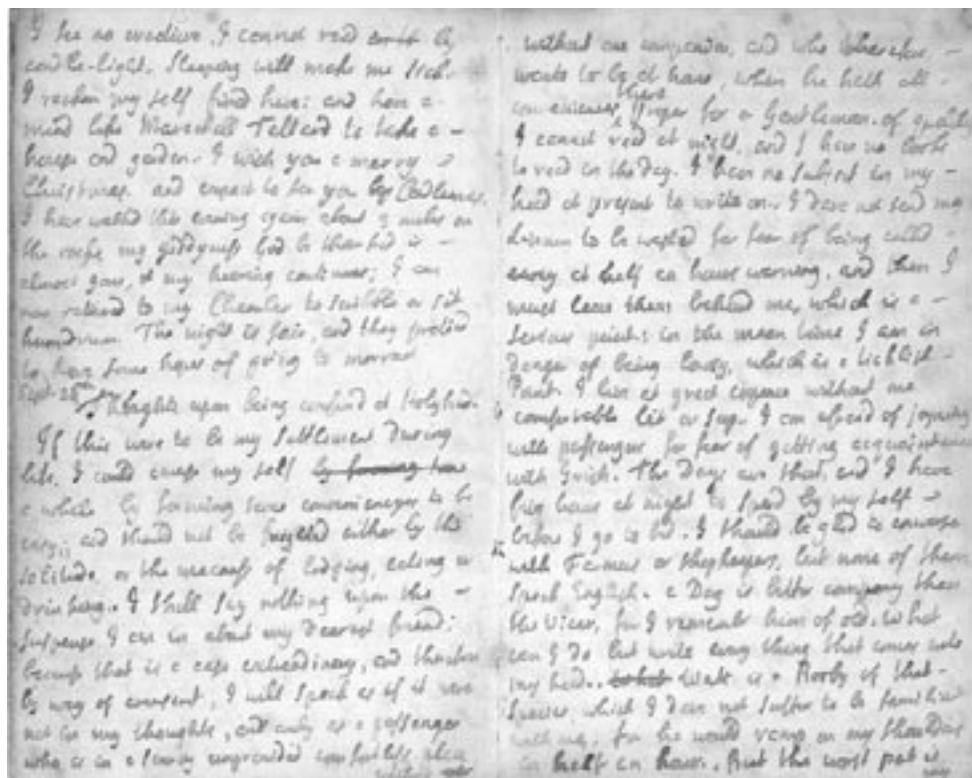 I see no
I cannot read by
candle-light. Sleeping will make me sick.
I reckon my self fixed here: and have a
mind like Mareschall Tallard to take a
house and garden. I wish you a merry
Christmas and expect to see you by Candlemas.
I have walked this evening again about 3 miles on
the rocks my giddyness God be thanked is
almost gone, & my hearing continues; I am
now retired to my Chamber to scribble or sit
humdrum. The night is fair, and they pretend
to have some hopes of going to morrow
Sept. 28th
Thoughts upon being confind at Holyhead.
If this were to be my settlement during
life, I could my self by forming some
a while by forming some conveniencyes to be
easy; and should not be either by the
solitude, or the meaness of lodging, eating or
drinking. I shall say nothing upon the
suspense I am in about my dearest friend:
because that is a case extraordinary, and therefore
by way of comfort, I will speak as if it were
not in my thoughts, and only as a passenger
who is in a scurvy unprovided comfortless place
without one
without one companion, and who therefore
wants to be at home, when he hath all
conveniences there proper for a Gentleman of quality.
I cannot read at night, and I have no books
to read in the day. I have no subject in my
head at present to write on. I dare not send my
linnen to be washed for fear of being called
away at half an hours warning, and then I
must leave them behind me, which is a
serious point; in the mean time I am in
danger of being lousy, which is a ticklish
Point. I live at great expence without one
comfortable bit or sup. I am afraid of joyning
with passengers for fear of getting acquaintance
with Irish. The Days are short, and I have
five hours at night to spend by my self
before I go to bed. I should be glad to converse
with Farmers or shopkeepers, but none of them
speak English. A Dog is better company than
the Vicar, for I remember him of old. What
can I do but write every thing that comes into
my head. What Watt is a Booby of that
species which I dare not suffer to be familiar
with me, for he would ramp on my shoulders
in half an hour. But the worst part is